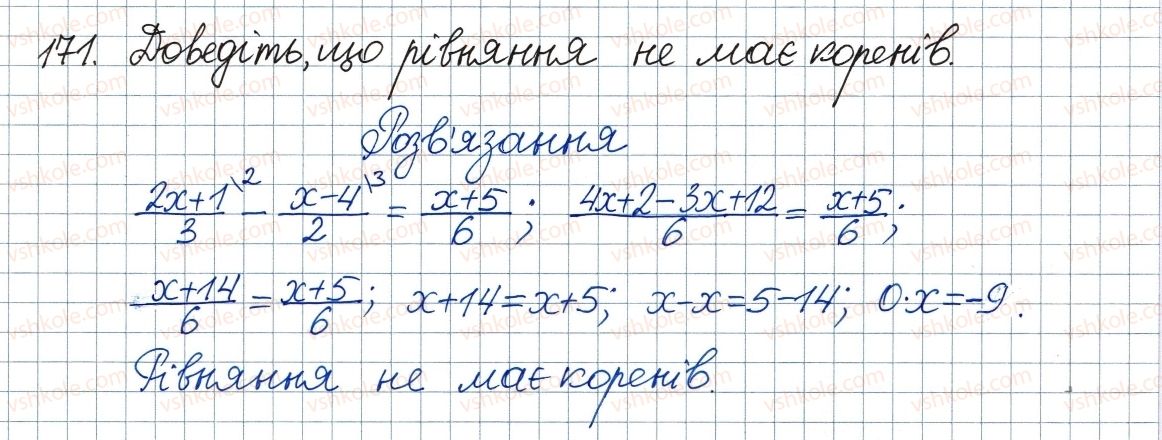 171. Доведіть, що рівняння не має коренів.
Розв'язання
(2x+1)/3 \2 - (x-4)/2 \3 = (x+5)/6; (4x+2-3x+12)/6 = (x+5)/6;
(x+14)/6 = (x+5)/6; x+14=x+5; x-x=5-14; 0·x=-9.
Рівняння не має коренів.